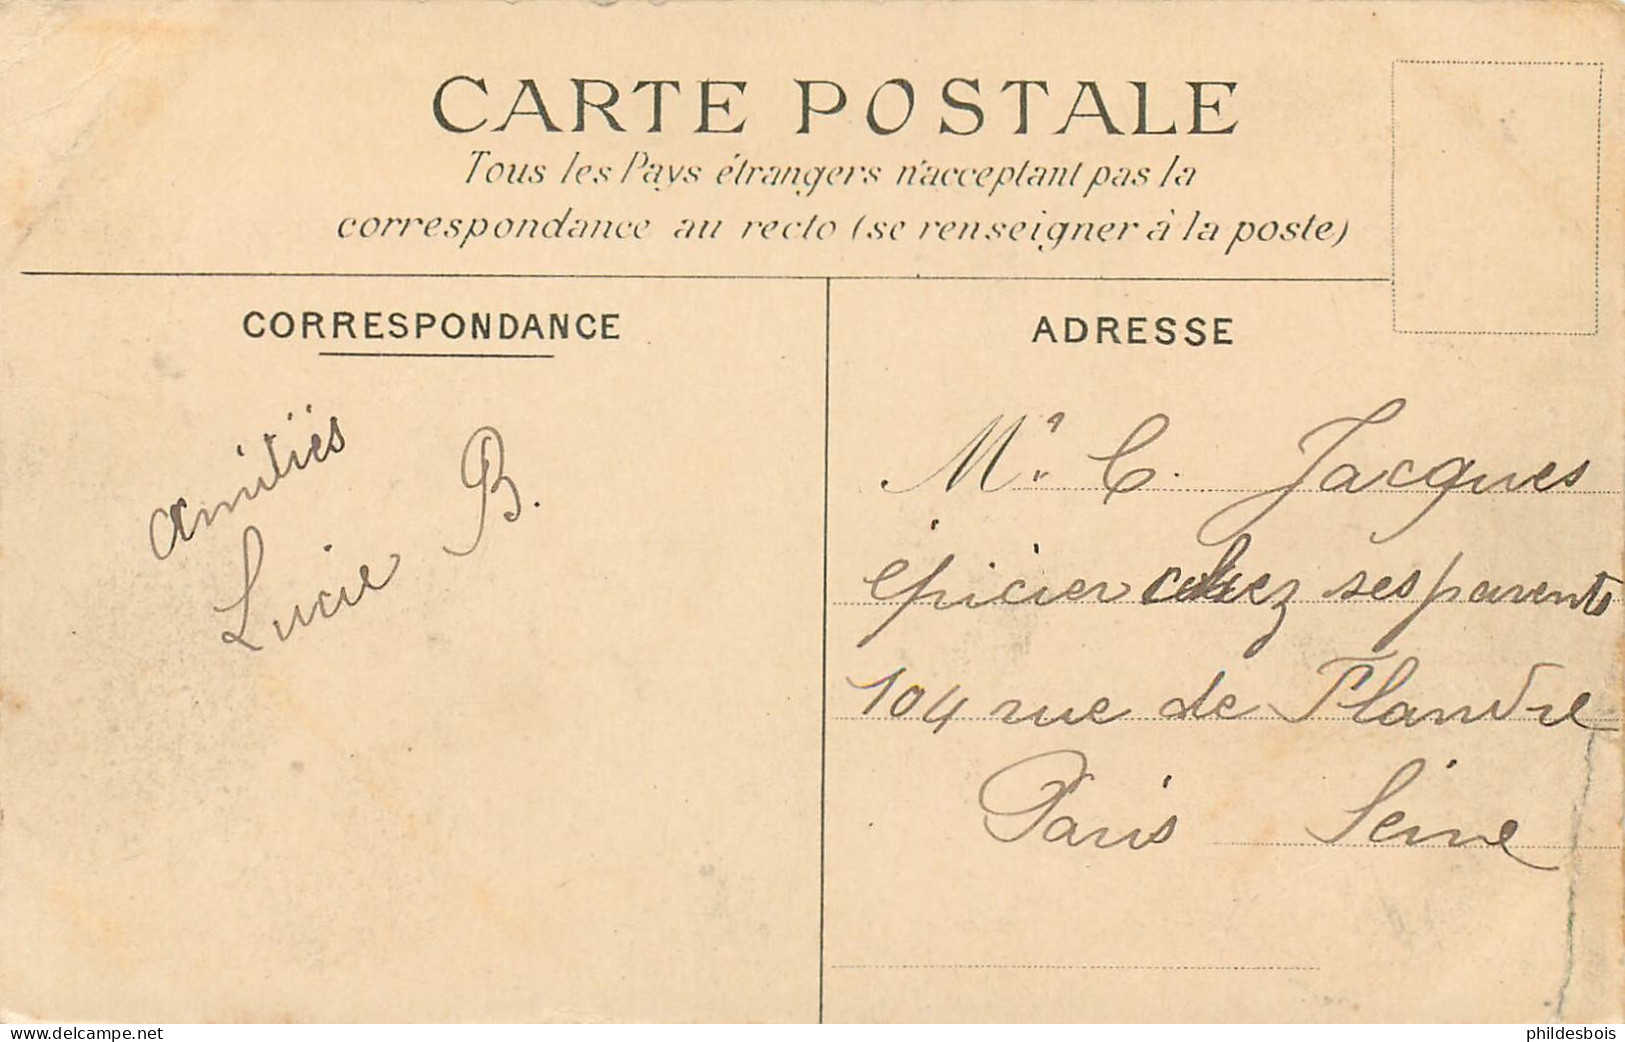 CARTE POSTALE
Tous les Pays étrangers n'acceptant pas la
correspondance au recto (se renseigner à la poste)
CORRESPONDANCE
ADRESSE
amitiés
Lucie B.
Mr. C. Jacques
épicier chez ses parents
104 rue de Flandre
Paris Seine
www.delcampe.net
phildesbois